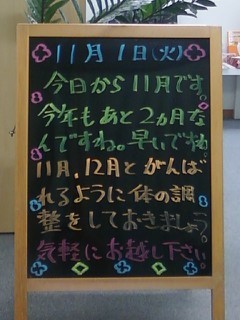 11月1日(火)
今日から11月です。
今年もあと2ヵ月な
んですね。早いですね
11月、12月とがんば
れるように体の調
整をしておきましょう。
気軽にお越し下さい。